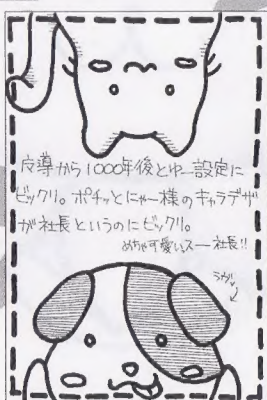 魔導から1000年後とゆー設定に
ビックリ。ポチッとにゃー様のキャラデザ
が社長というのにビックリ。
めちゃ可愛いスー社長!!